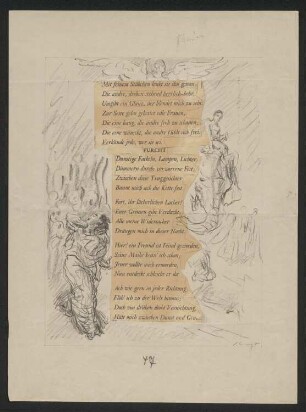 Mit feinem Stäbchen lenkt sie ihn genau;
Die andre, droben stehend herrlich-hehr,
Umgibt ein Glanz, der blendet mich zu sehr.
Zur Seite gehn gekettet edle Frauen,
Die eine bang, die andre froh zu schauen;
Die eine wünscht, die andre fühlt sich frei.
Verkünde jede, wer sie sei.
FURCHT
Dunstige Fackeln, Lampen, Lichter
Dämmern durchs verworrne Fest;
Zwischen diese Truggesichter
Bannt mich ach die Kette fest.
Fort, ihr lächerlichen Lacher!
Euer Grinsen gibt Verdacht;
Alle meine Widersacher
Drängen mich in dieser Nacht.
Hier! ein Freund ist Feind geworden,
Seine Maske kenn ich schon;
Jener wollte mich ermorden,
Nun entdeckt schleicht er da
Ach wie gern in jeder Richtung
Flöh ich zu der Welt hinaus;
Doch von drüben droht Vernichtung,
Hält mich zwischen Dunst und Graus.